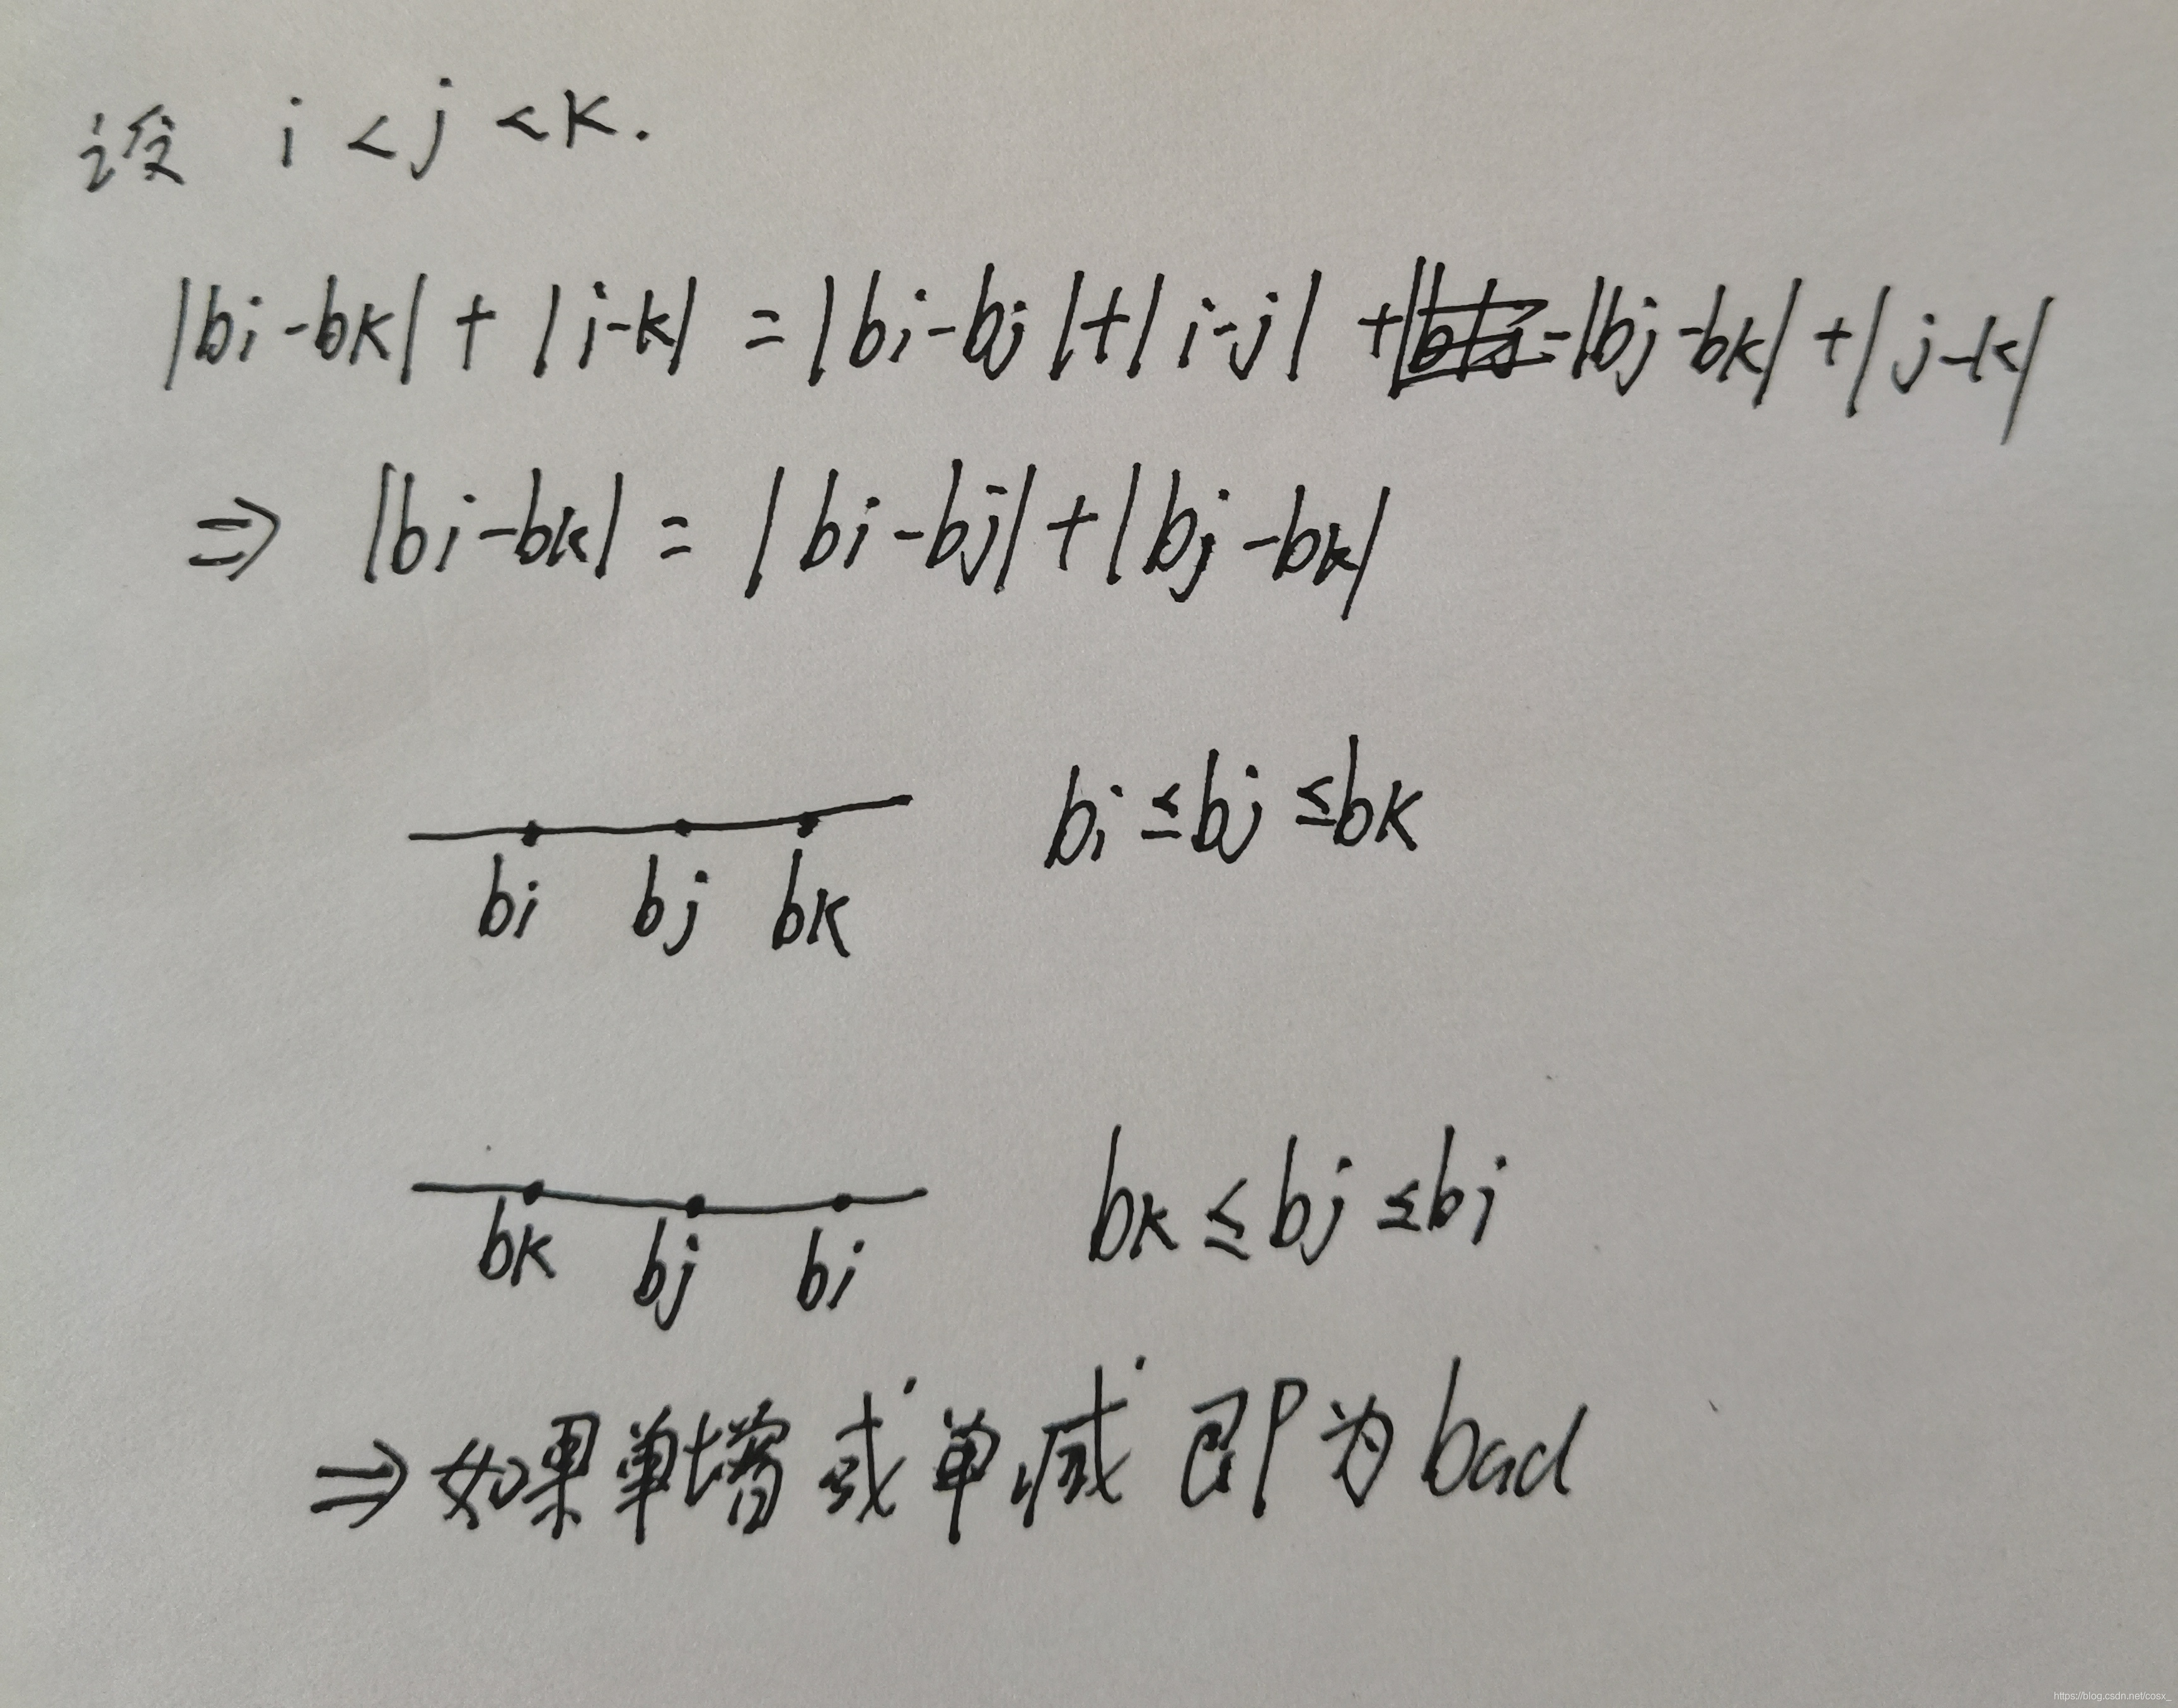 设 i < j < k.
|bi-bk| + |i-k| = |bi-bj|+|i-j| + |bj-bk| + |j-k|
⇒ |bi-bk| = |bi-bj|+|bj-bk|
bi bj bk
bi ≤ bj ≤ bk
bk bj bi
bk ≤ bj ≤ bi
⇒ 如果单增 或 单减 即为 bad
https://blog.csdn.net/cosx_